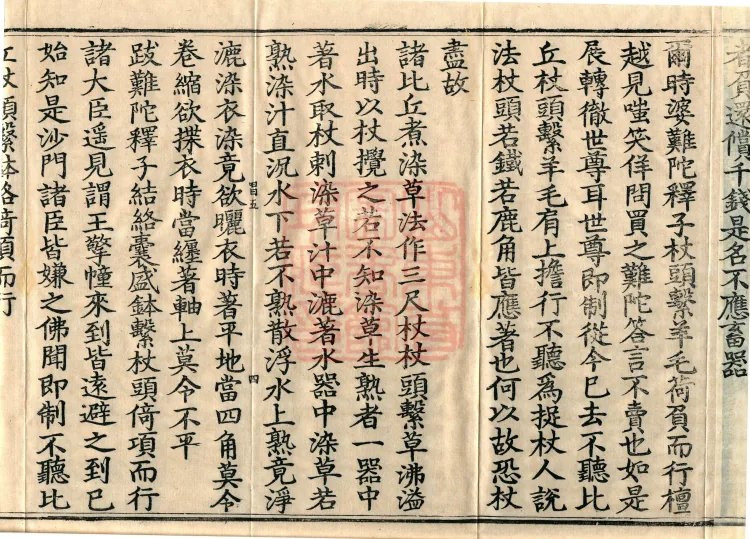 者賈還價千錢是名不應畜器
爾時婆難陀釋子杖頭繫羊毛荷負而行檀
越見嗤笑佯問買之難陀答言不賣也如是
展轉徹世尊耳世尊即制從今已去不聽比
丘杖頭繫羊毛肩上擔行不聽為捉杖人說
法杖頭若鐵若鹿角皆應著也何以故恐杖
盡故
諸比丘煮染草法作三尺杖杖頭繫草沸溢
出時以杖攪之若不知染草生熟者一器中
著水取杖刺染草汁中漉著水器中染草若
熟染汁直沉水下若不熟散浮水上熟竟淨
漉染衣染竟欲曬衣時著平地當四角莫令
卷縮欲揲衣時當纏著軸上莫令不平
昌五
四
跋難陀釋子結絡囊盛鉢繫杖頭倚項而行
諸大臣遥見謂王擎幢來到皆遠避之到已
始知是沙門諸臣皆嫌之佛聞即制不聽比
丘杖頭繫鉢絡倚項而行